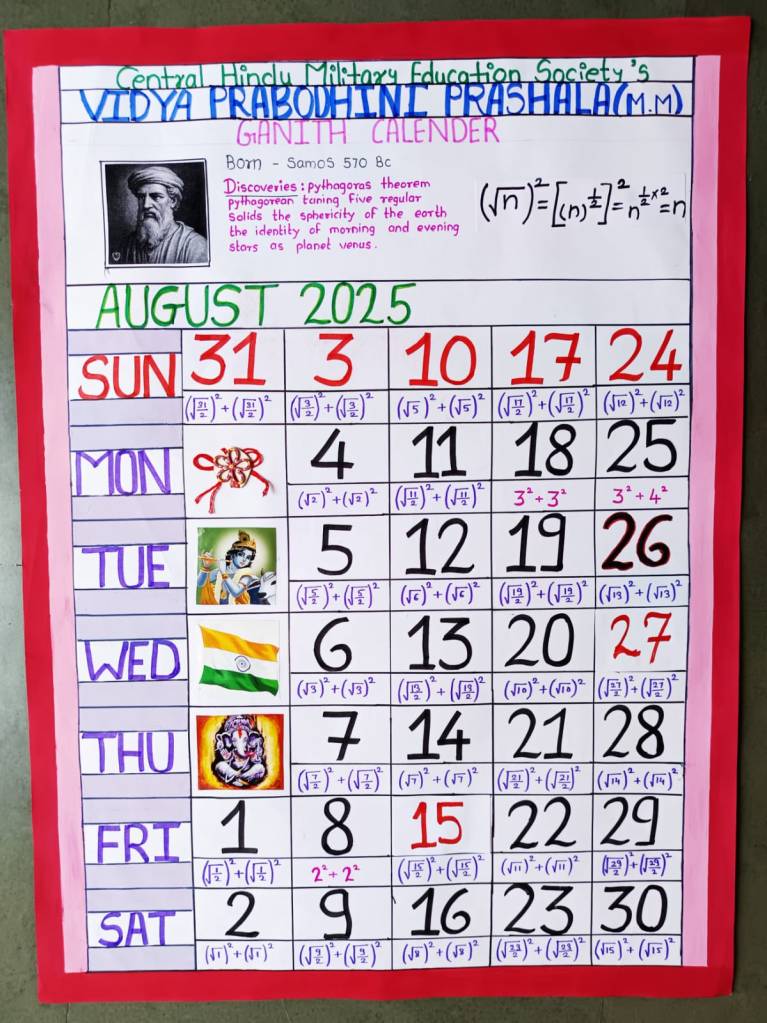 Central Hindu Military Education Society's
VIDYA PRABODHINI PRASHALA(M.M)
GANITH CALENDER
Born - Samos 570 Bc
Discoveries : pythagoras theorem
pythagorean taning five regular
solids the sphericity of the earth
the identity of morning and evening
stars as planet venus.
(√n)² = [(n)^½]² = n^(½×2) = n
AUGUST 2025
SUN 31 3 10 17 24
(√31/2)² + (√31/2)² (√3/2)² + (√3/2)² (√5)² + (√5)² (√17/2)² + (√17/2)² (√12)² + (√12)²
MON 4 11 18 25
(√2)² + (√2)² (√11/2)² + (√11/2)² 3² + 3² 3² + 4²
TUE 5 12 19 26
(√5/2)² + (√5/2)² (√6)² + (√6)² (√19/2)² + (√19/2)² (√13)² + (√13)²
WED 6 13 20 27
(√3)² + (√3)² (√13/2)² + (√13/2)² (√10)² + (√10)² (√27/2)² + (√27/2)²
THU 7 14 21 28
(√7/2)² + (√7/2)² (√7)² + (√7)² (√21/2)² + (√21/2)² (√14)² + (√14)²
FRI 1 8 15 22 29
(√1/2)² + (√1/2)² 2² + 2² (√15/2)² + (√15/2)² (√11)² + (√11)² (√29/2)² + (√29/2)²
SAT 2 9 16 23 30
(√1)² + (√1)² (√9/2)² + (√9/2)² (√8)² + (√8)² (√23/2)² + (√23/2)² (√15)² + (√15)²